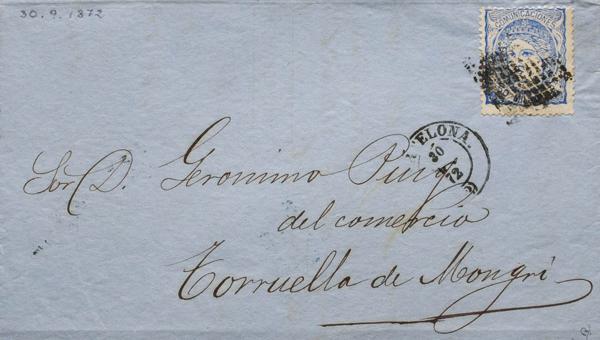 30.9.1872
COMUNICACIONES
Sor. D. Geronimo Puig
del comercio
Torruella de Mongri
ELONA.
30
72